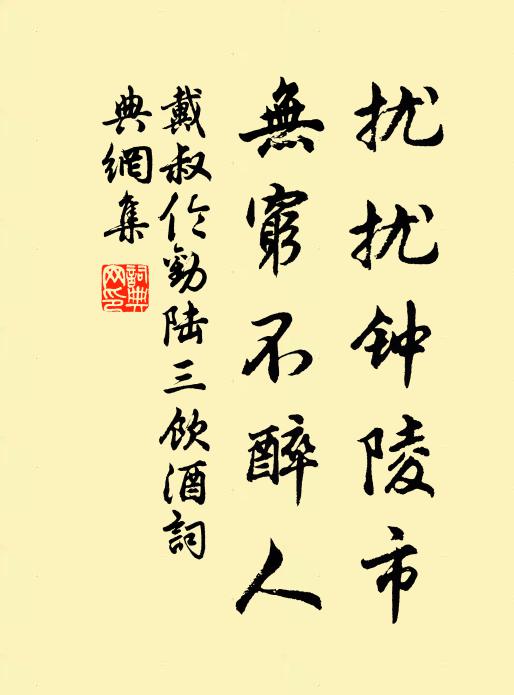 扰扰钟陵市
無窮不醉人
戴叔伦勸陆三饮酒詞
典網集
詞典网印